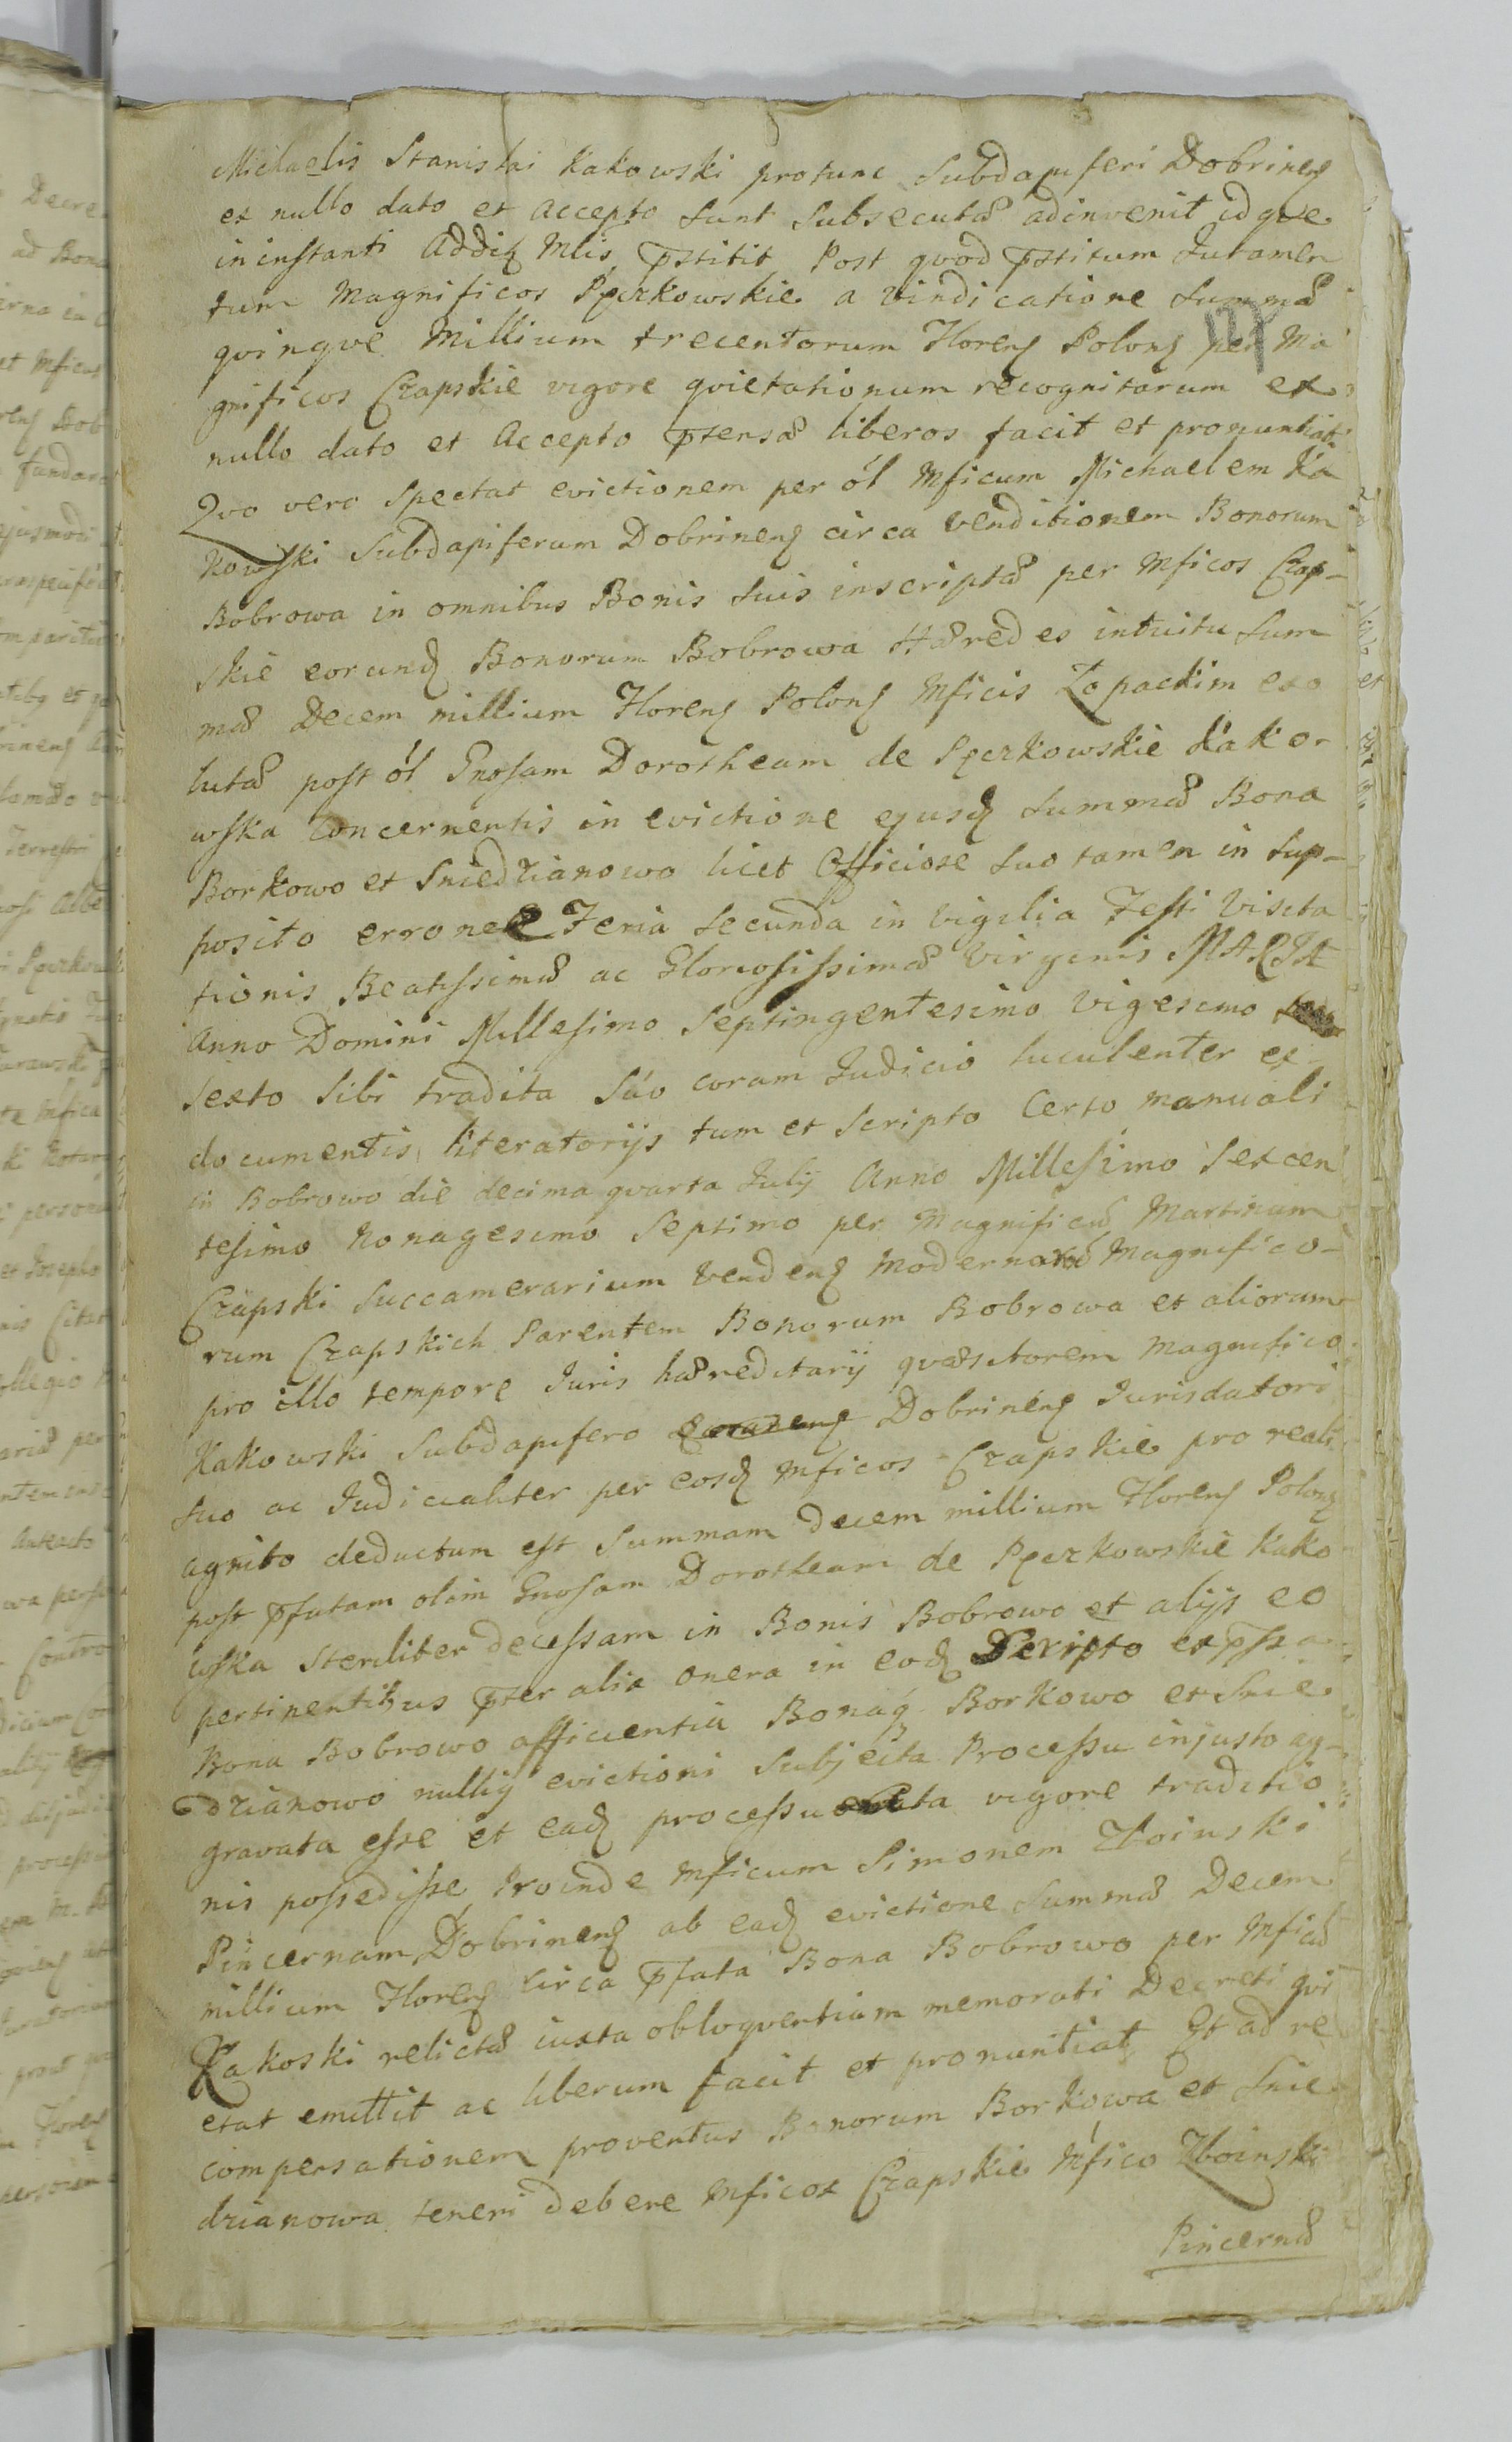 Michaelis Stanislai Kakowski protunc Subdapiferi Dobrinenſ
ex nullo dato et accepto sunt subsecutæ adinvenit idque
in instanti Addictus Mlis p̄stitit Post quod p̄stitum Juramen
tum Magnificos Pęczkowskie a vindicatione summæ
quinque Millium trecentorum Florenſ Polonſ per Ma
gnificos Czapskie vigore quietationum recognitarum ex
nullo dato et accepto p̄tensæ liberos facit et pronuntiat
Quo vero spectat evictionem per ól Mficum Michaelem Ka
kowski Subdapiferum Dobrinenſ circa venditionem Bonorum
Bobrowa in omnibus Bonis suis inscriptæ per Mficos Czap-
skie eorundꝫ Bonorum Bobrowa Hæredes intuitu sum
mæ Decem millium Florenſ Polonſ Mficis Łopackim exo
lutæ post ól Gnosam Dorotheam de Pęczkowskie Kako-
wska concernentis in evictione ejusdꝫ summæ Bona
Borkowo et Sniedzianowo licet Officiose suo tamen in sup-
posito erronee Feria secunda in vigilia Festi Visita
tionis Beatissimæ ac Gloriosissimæ Virginis MARIÆ
Anno Domini Millesimo Septingentesimo Vigesimo
sexto sibi tradita Sáo coram Judicio luculenter ex
documentis literatorijs tum et scripto Certo manuali
in Bobrowo die decima quarta Julij Anno Millesimo Sexcen
tesimo Nonagesimo Septimo per Magnificū Martinum
Czapski Succamerarium Vendenſ Modernorū Magnifico-
rum Czapskich Parentem Bonorum Bobrowa et aliorum
pro illo tempore Juris hæreditarij quæsitorem Magnifico
Kakowski Subdapifero Dobrinenſ Jurisdatori
suo ac Judicialiter per eosdꝫ Mficos Czapskie pro reali
agnito deductum est Summam decem millium Florenſ Polonſ
post p̄fatam olim Gnosam Dorotheam de Pęczkowskie Kako
wska steriliter decessam in Bonis Bobrowo et alijs eo
pertinentibus p̄ter alia onera in eodꝫ Scripto exp̄ssa
Bona Bobrowo afficientia Bonaqꝫ Borkowo et Snie
dzianowo nullij evictioni subjecta Processu injusto ag-
gravata esse et eadꝫ processu vigore traditio
nis possedisse Proinde Mficum Simonem Zboinski
Pincernam Dobrinenſ ab eadꝫ evictione summæ Decem
millium Florenſ circa p̄fata Bona Bobrowo per Mficū
Kakoski relictæ iuxta obloquentiam memorati Decreti qui
etat emittit ac liberum facit et pronuntiat Et ad re
compensationem proventus Bonorum Borkowa et Snie
dzianowa teneri debere Mficos Czapskie Mfico Zboinski
Pincernæ